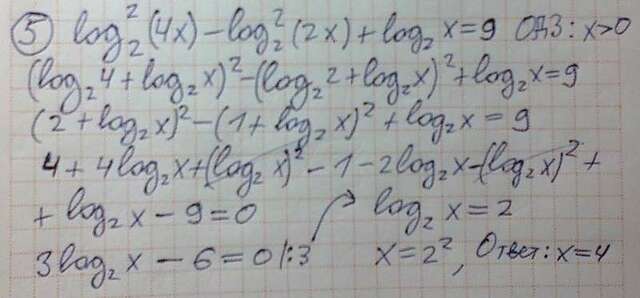 ⑤ log₂²(4x) − log₂²(2x) + log₂x = 9 ОДЗ: x>0
(log₂4 + log₂x)² − (log₂2 + log₂x)² + log₂x = 9
(2 + log₂x)² − (1 + log₂x)² + log₂x = 9
4 + 4log₂x + (log₂x)² − 1 − 2log₂x − (log₂x)² +
+ log₂x − 9 = 0
3log₂x − 6 = 0 |:3
log₂x = 2
x = 2², Ответ: x = 4